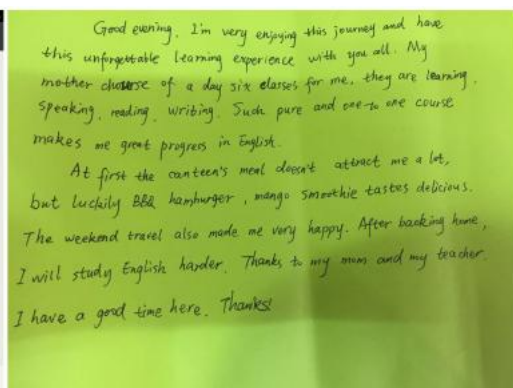 Good evening, I'm very enjoying this journey and have
this unforgettable learning experience with you all. My
mother chouse of a day six classes for me, they are learning,
speaking, reading, writing. Such pure and one-to one course
makes me great progress in English.
At first the canteen's meal doesn't attract me a lot,
but luckily BBQ hamburger, mango smoothie tastes delicious.
The weekend travel also made me very happy. After backing home,
I will study English harder. Thanks to my mom and my teacher.
I have a good time here. Thanks!